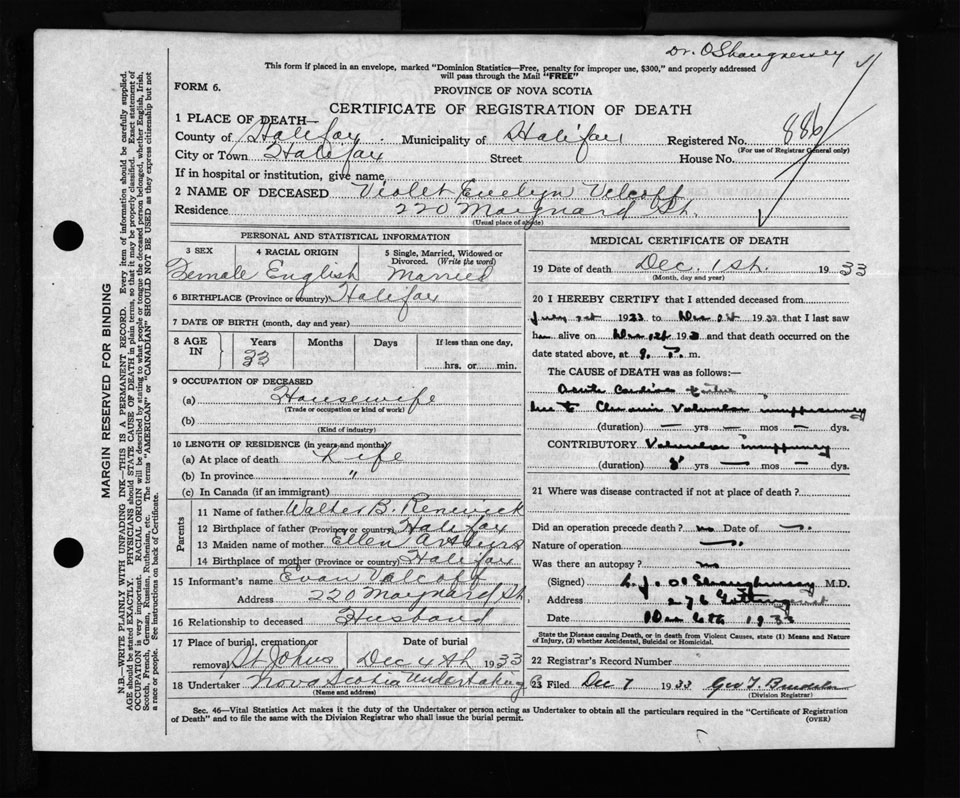 Dr. OShaugnessy
This form if placed in an envelope, marked "Dominion Statistics—Free, penalty for improper use, $300," and properly addressed
will pass through the Mail "FREE"
FORM 6.
PROVINCE OF NOVA SCOTIA
CERTIFICATE OF REGISTRATION OF DEATH
1 PLACE OF DEATH—
County of Halifax Municipality of Halifax Registered No. 886
(For use of Registrar General only)
City or Town Halifax Street House No.
If in hospital or institution, give name
2 NAME OF DECEASED Violet Evelyn Valcoff
Residence 220 Maynard St.
(Usual place of abode)
PERSONAL AND STATISTICAL INFORMATION
3 SEX 4 RACIAL ORIGIN 5 Single, Married, Widowed or Divorced. (Write the word)
Female English Married
6 BIRTHPLACE (Province or country) Halifax
7 DATE OF BIRTH (month, day and year)
8 AGE IN Years Months Days If less than one day,
33 hrs. or min.
9 OCCUPATION OF DECEASED
(a) Housewife
(Trade or occupation or kind of work)
(b)
(Kind of industry)
10 LENGTH OF RESIDENCE (in years and months)
(a) At place of death Life
(b) In province "
(c) In Canada (if an immigrant)
Parents
11 Name of father Walter B. Renwick
12 Birthplace of father (Province or country) Halifax
13 Maiden name of mother Ellen
14 Birthplace of mother (Province or country) Halifax
15 Informant's name Evan Valcoff
Address 220 Maynard St
16 Relationship to deceased Husband
17 Place of burial, cremation or removal Date of burial
St Johns Dec 4th 1933
18 Undertaker Nova Scotia Undertaking Co
(Name and address)
MEDICAL CERTIFICATE OF DEATH
19 Date of death Dec. 1st. 1933
(Month, day and year)
20 I HEREBY CERTIFY that I attended deceased from
July 1st 1933 to 1933 that I last saw
her alive on 193 and that death occurred on the
date stated above, at 9. P. m.
The CAUSE of DEATH was as follows:—
Acute Cardiac
due to Chronic Valvular
(duration) — yrs — mos — dys.
CONTRIBUTORY Valvular
(duration) yrs — mos — dys.
21 Where was disease contracted if not at place of death?
Did an operation precede death? no Date of —
Nature of operation —
Was there an autopsy? no
(Signed) M.D.
Address 276 Gottingen st
Date Dec 6th 1933
State the Disease causing Death, or in death from Violent Causes, state (1) Means and Nature
of Injury, (2) whether Accidental, Suicidal or Homicidal.
22 Registrar's Record Number
23 Filed Dec 7 1933
(Division Registrar)
Sec. 46—Vital Statistics Act makes it the duty of the Undertaker or person acting as Undertaker to obtain all the particulars required in the "Certificate of Registration
of Death" and to file the same with the Division Registrar who shall issue the burial permit.
(OVER)
MARGIN RESERVED FOR BINDING
N.B.—WRITE PLAINLY WITH UNFADING INK—THIS IS A PERMANENT RECORD. Every item of information should be carefully supplied.
AGE should be stated EXACTLY. PHYSICIANS should STATE CAUSE OF DEATH in plain terms, so that it may be properly classified. Exact statement of
OCCUPATION is very important. RACIAL ORIGIN will be described by stating to what people or tongue the deceased person belonged, whether English, Irish,
Scotch, French, German, Russian, Ruthenian, etc. The terms "AMERICAN" or "CANADIAN" SHOULD NOT BE USED as they express citizenship but not
a race or people. See instructions on back of Certificate.